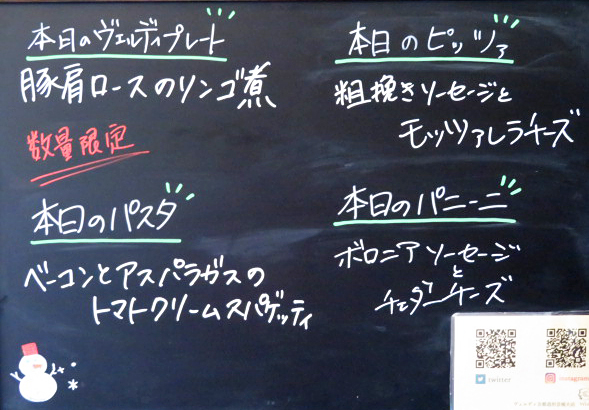 本日のヴェルディプレート
豚肩ロースのリンゴ煮
数量限定
本日のピッツァ
粗挽きソーセージと
モッツァレラチーズ
本日のパスタ
ベーコンとアスパラガスの
トマトクリームスパゲッティ
本日のパニーニ
ボロニアソーセージ
と
チェダーチーズ
twitter
instagram